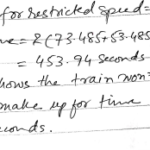 for restricted speed =
me = 2(73.485+53.485
= 453.94 seconds
hows the train won=
make up for time
conds.